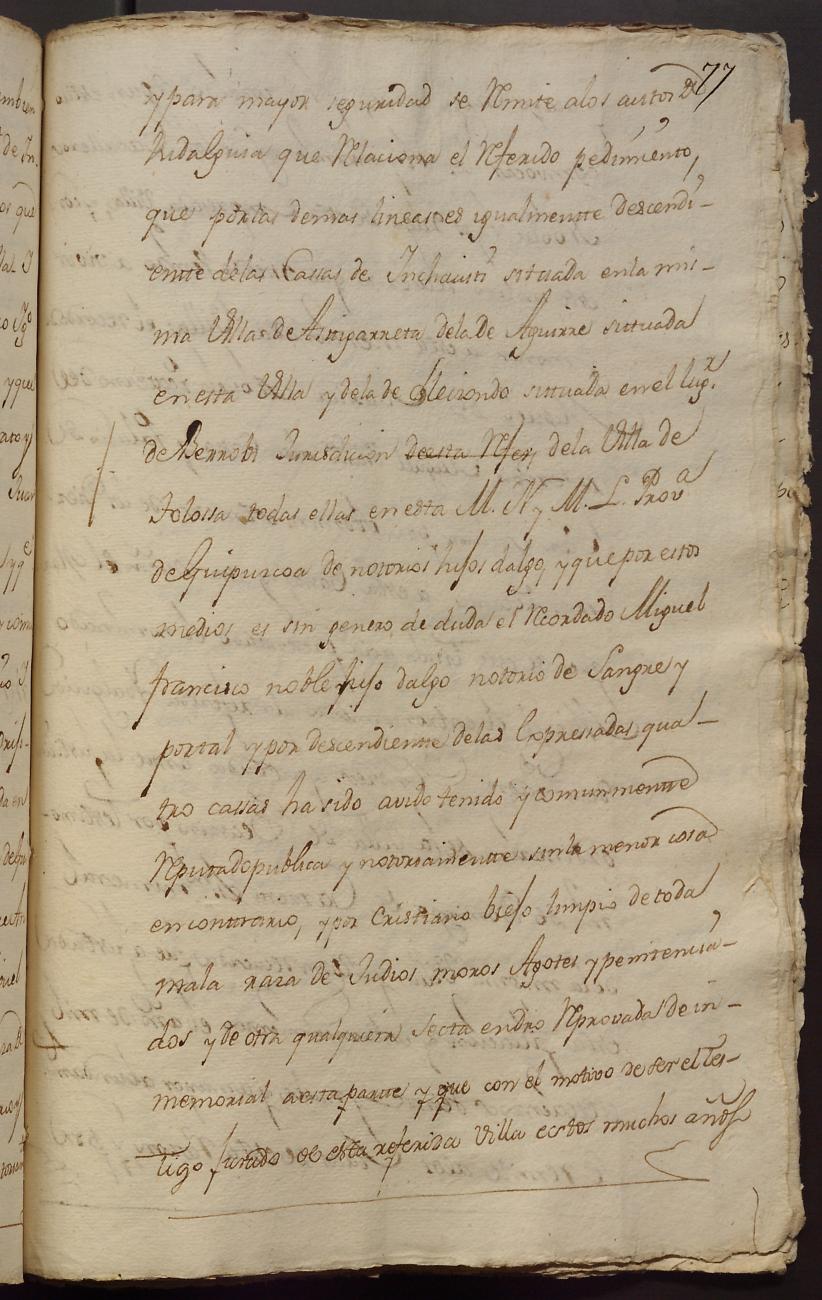 77
y para mayor seguridad se Remite alos autos de
hidalguia que Relaciona el Referido pedimiento,
que por las demas lineas es igualmentte descendi-
entte delas Cassas de Inchausti situada en la mis-
ma Villa de Astigarreta dela de Aguirre sittuada
en esta Villa y dela de Eleizondo sittuada en el lugr.
de Berrobi Jurisdicion de esta Refer, dela Villa de
Tolossa todas ellas en esta M. N. y M. L. Prova
de Guipuzcoa de notorios hijos dalgo, y que por estos
medios es sin genero de duda el Recordado Miguel
francisco noble hijo dalgo notorio de Sangre y
por tal y por descendiente delas Expressadas qua-
tro cassas ha sido avido tenido y comunmente
Reputado publica y notoriamentte sin la menor cosa
en conttrario, y por Cristiano biejo limpio de toda
mala raza de Judios moros Agotes y penitencia-
dos y de otra qualquiera Secta en dro Reprovada de in-
memorial a esta partte y que con el motivo de ser el tes-
tigo Jurado de esta referida Villa estos muchos años